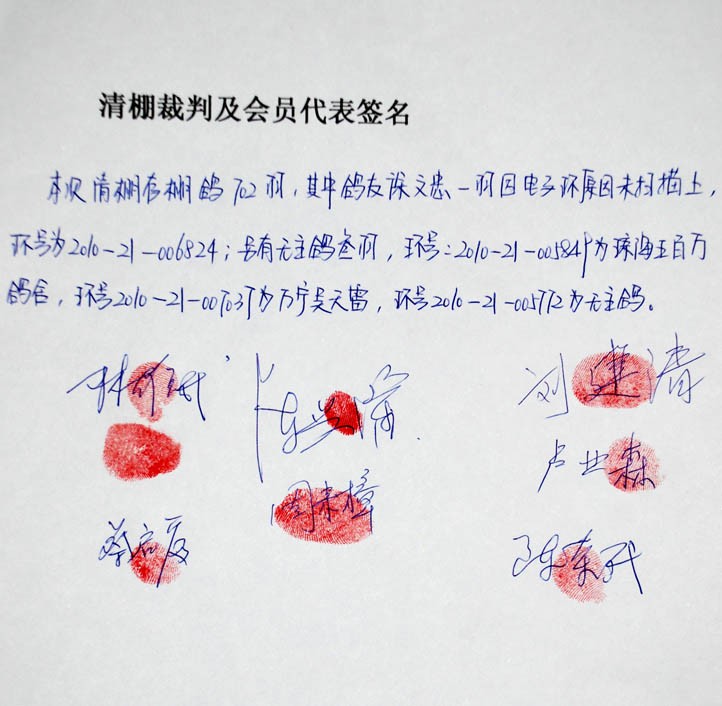 清棚裁判及会员代表签名
本次清棚存棚鸽702羽，其中鸽友 文忠一羽因电子环原因未扫描上，
环号为2010-21-006824；另有无主鸽叁羽，环号：2010-21-005849为琼海五百万
鸽舍，环号2010-21-007037为万宁吴天雷，环号2010-21-005772为无主鸽。
刘建清
卢业森
周来樟
蔡启厦